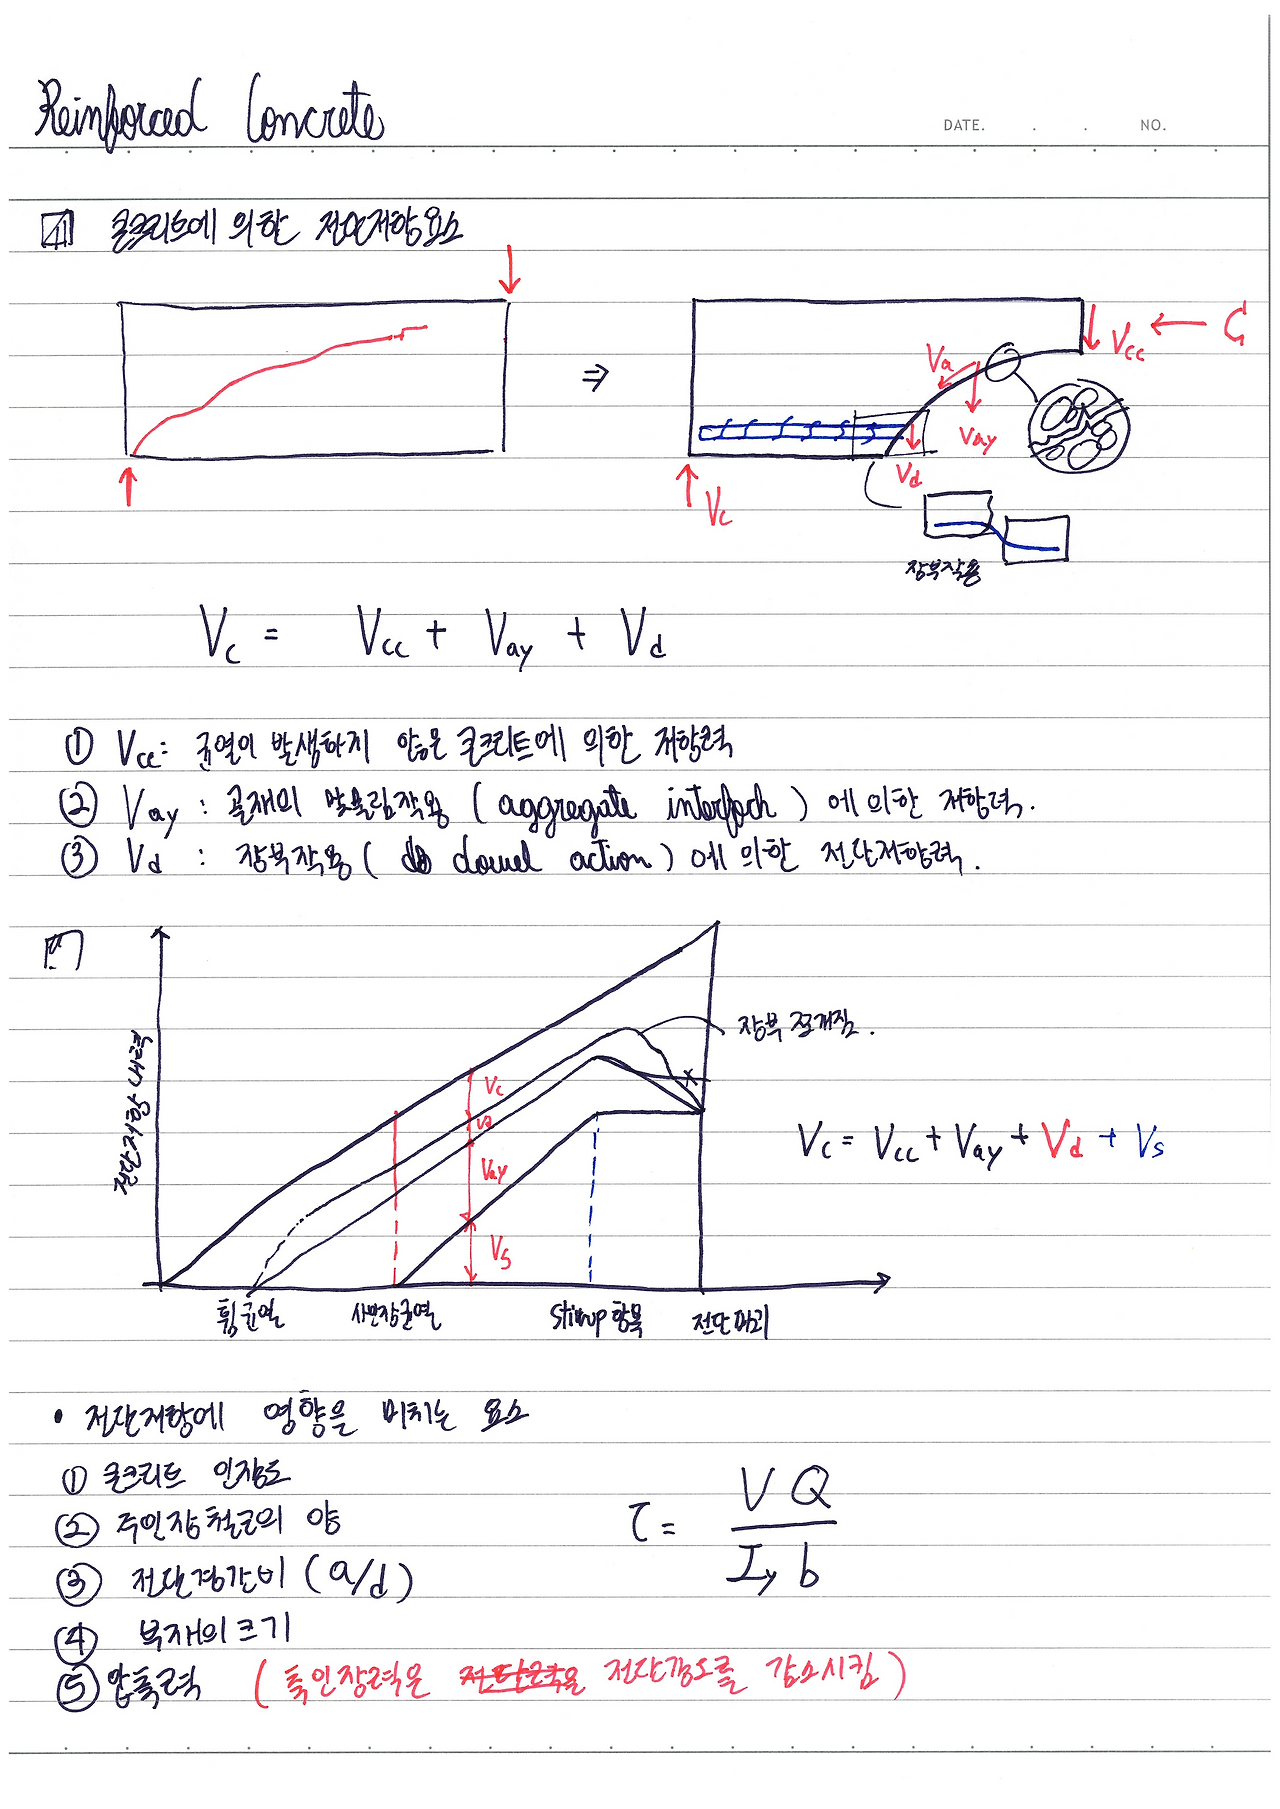 Reinforced Concrete
DATE. . . NO.
4 콘크리트에 의한 전단저항요소
⇒
Va
Vay
Vd
Vcc ← C
Vc
장부작용
Vc = Vcc + Vay + Vd
① Vcc: 균열이 발생하지 않은 콘크리트에 의한 저항력
② Vay : 골재의 맞물림작용 (aggregate interlock) 에 의한 저항력.
③ Vd : 장부작용 (dowel action) 에 의한 전단저항력.
전단저항 내력
장부 쪼개짐.
Vc
Vd
Vay
Vs
Vc = Vcc + Vay + Vd + Vs
휨균열 사인장균열 stirrup 항복 전단파괴
• 전단저항에 영향을 미치는 요소
① 콘크리트 인장도
② 주인장철근의 양
③ 전단경간비 (a/d)
④ 부재의 크기
⑤ 압축력 (축인장력은 전단강도를 감소시킴)
τ = VQ / Iy b